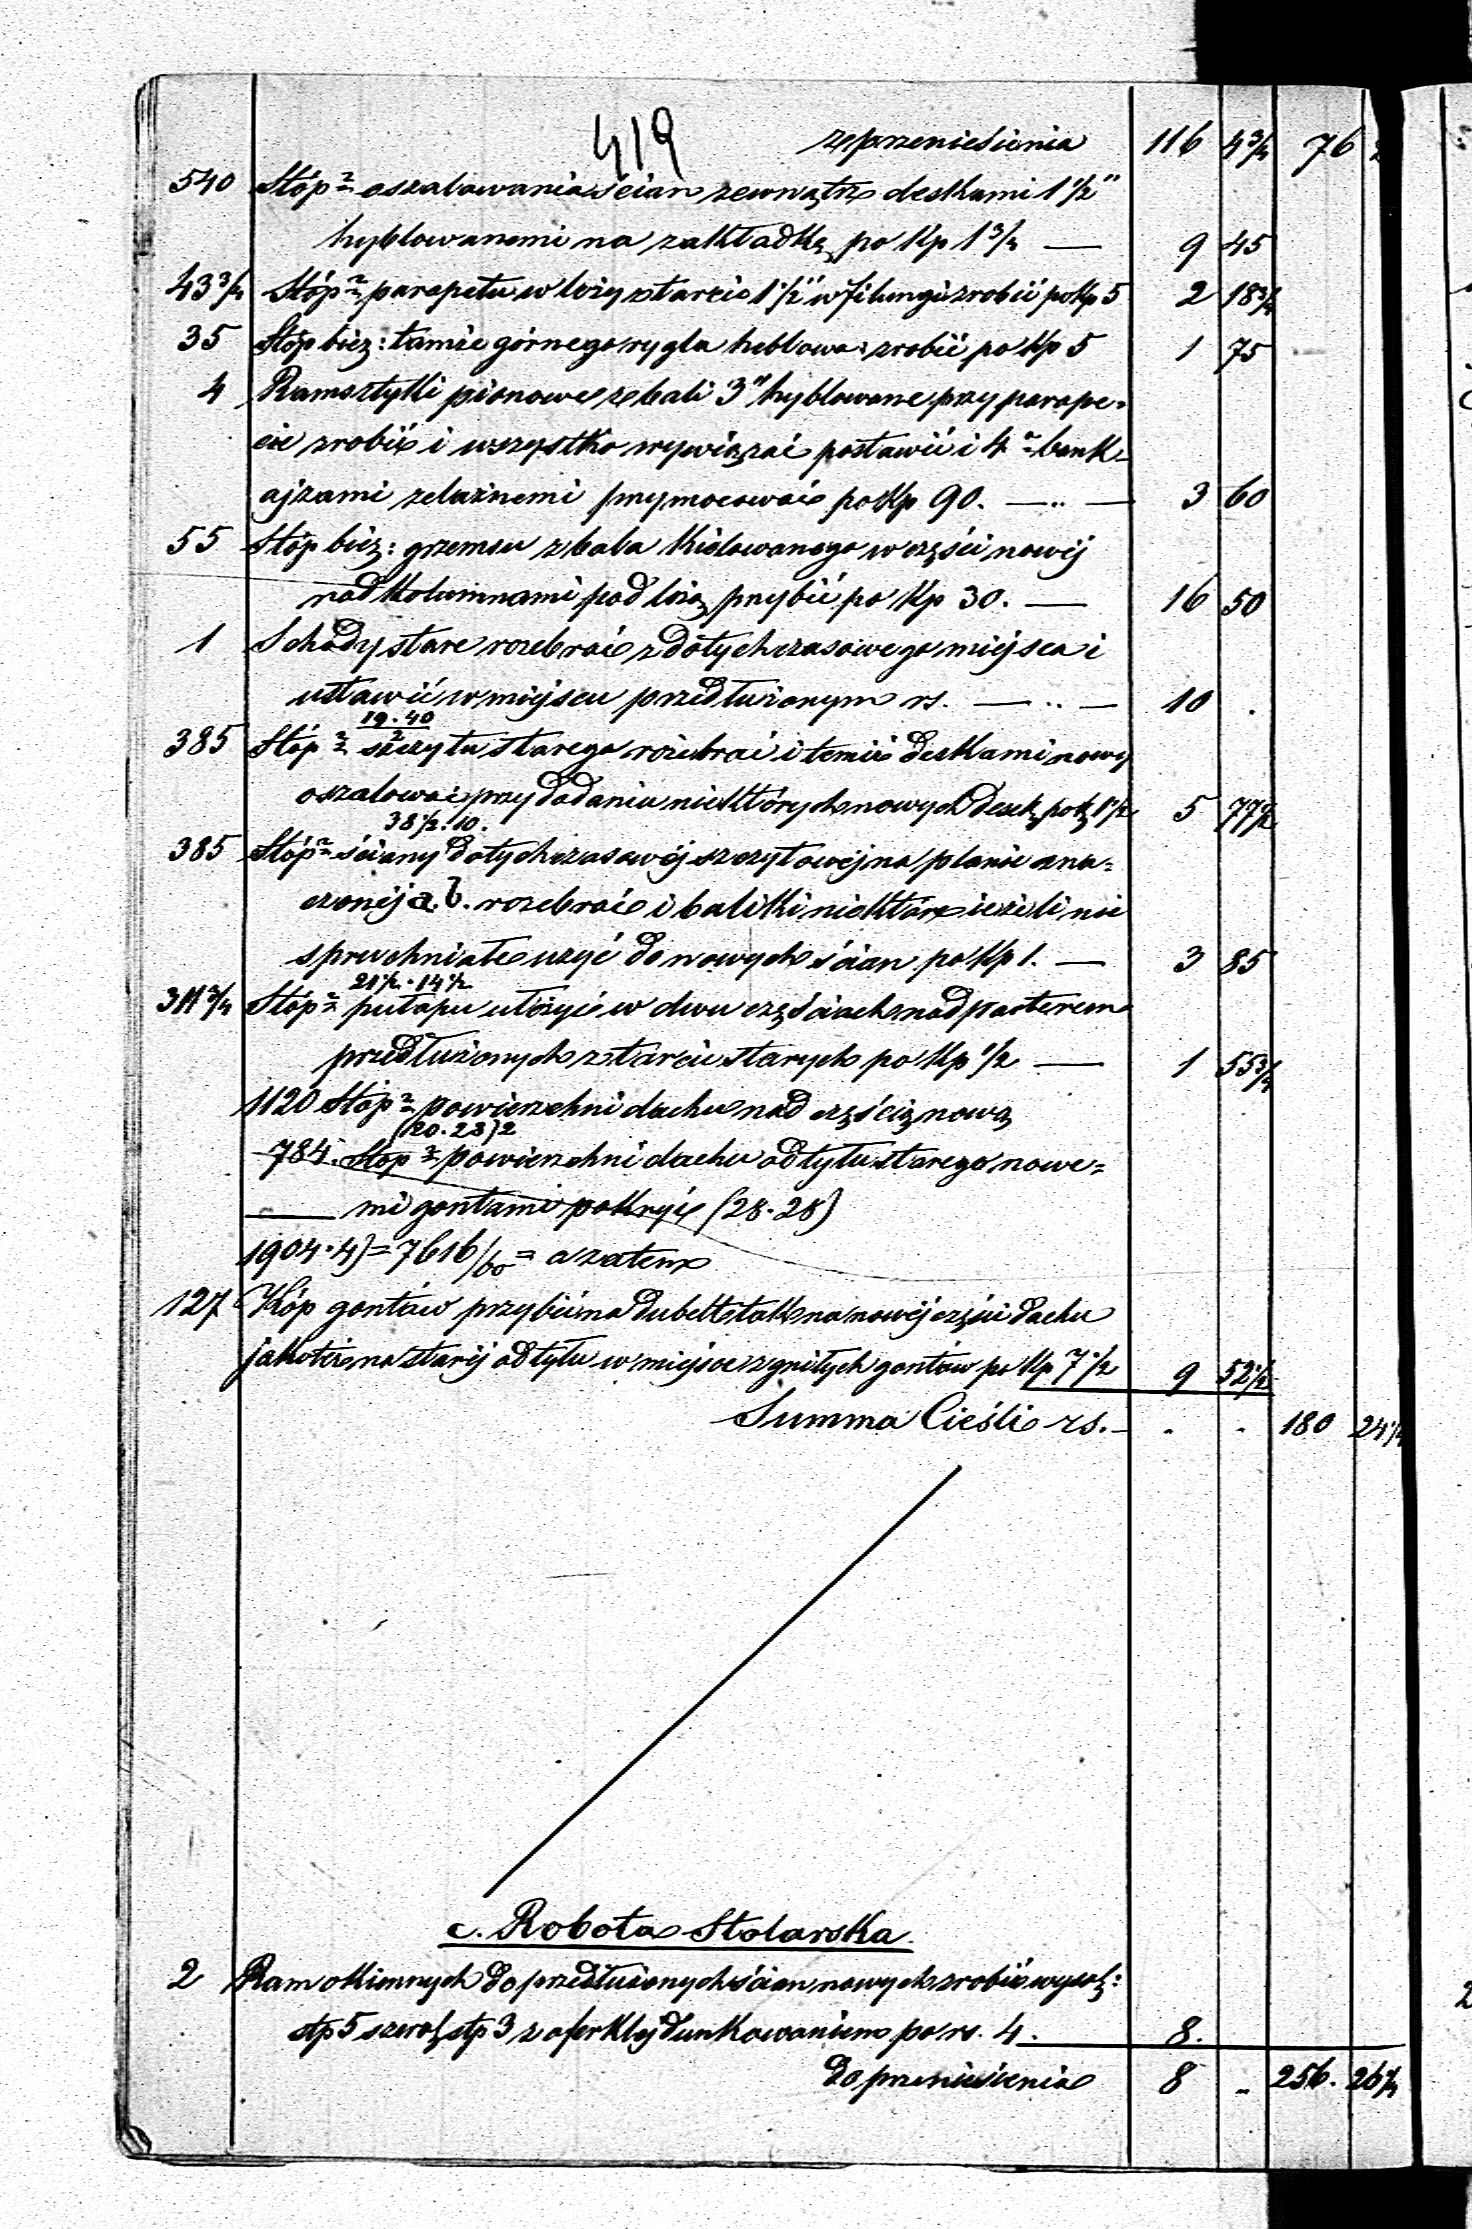 419
z przeniesienia 116 4 3/4 76
540 Stóp ² oszalowania ścian zewnątrz deskami 1 1/2"
hyblowanemi na zakładkę po Kp 1 3/4 — 9 45
43 3/4 Stóp ² parapetu w loży z tarcic 1 1/2" w filungi zrobić po Kp 5 2 18 3/4
35 Stóp bież: tamże górnego rygla heblowa: zrobić po Kp 5 1 75
4 Ramsztyki pionowe z bali 3" hyblowane przy parape=
cie zrobić i wszystko wywiązać postawić i 4 ª bank=
ajzami żelaznemi przymocować po Kp 90. — .. — 3 60
55 Stóp bież: gzemsu z bala kielowanego w części nowéj
nad kolumnami pod lożą przybić po Kp 30. — 16 50
1 Schody stare rozebrać z dotychczasowego miejsca i
ustawić w miejscu przedłużonym rs. — .. — 10 .
19.40
2
385 Stóp ² szczytu starego rozebrać i temiż deskami nowy
oszalować przy dodaniu niektórych nowych desek po K 1 1/2 5 77 1/2
38 1/2 . 10.
385 Stóp ² ściany dotychczasowéj szczytowéj na planie ozna=
czonéj a. b. rozebrać i baliki niektóre jeżeli nie
spruchniałe użyć do nowych ścian po Kp 1. — 3 85
21 1/2 . 14 1/2
311 3/4 Stóp ² pułapu ułożyć w dwu częściach nad parterem
przedłużonych z tarcic starych po Kp 1/2 — 1 55 3/4
1120 Stóp ² powierzchni dachu nad częścią nową
(20.28)2
784. Stóp ² powierzchni dachu od tyłu starego nowe=
mi gontami pokryć (28.28)
1904.4)=7616/60= a zatem
127 Kóp gontów przybić na dubelt tak na nowéj części dachu
jakoteż na staréj od tyłu w miejsce zgniłych gontów po Kp 7 1/2 9 52 1/2
Summa Cieśli rs.— . . 180 24 1/4
c. Robota Stolarska.
2 Ram okiennych do przedłużonych ścian nowych zrobić wysok:
stp 5 szerok stp 3 z oferklejdunkowaniem po rs. 4. 8.
do przeniesienia 8 - 256. 26 1/4